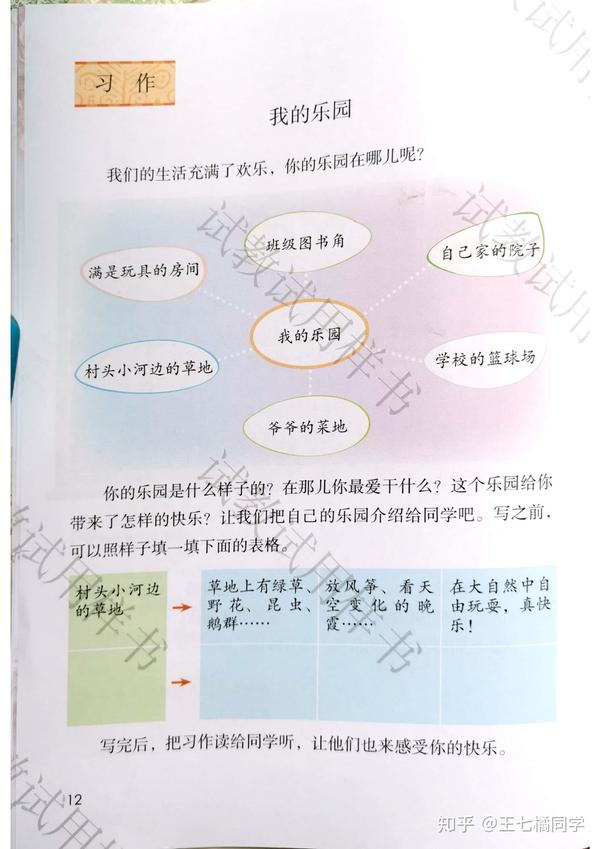 习 作
我的乐园
我们的生活充满了欢乐，你的乐园在哪儿呢？
班级图书角
自己家的院子
满是玩具的房间
我的乐园
村头小河边的草地
学校的篮球场
爷爷的菜地
你的乐园是什么样子的？在那儿你最爱干什么？这个乐园给你
带来了怎样的快乐？让我们把自己的乐园介绍给同学吧。写之前，
可以照样子填一填下面的表格。
村头小河边
的草地
草地上有绿草、
野花、昆虫、
鹅群……
放风筝、看天
空变化的晚
霞……
在大自然中自
由玩耍，真快
乐！
写完后，把习作读给同学听，让他们也来感受你的快乐。
12
试教试用样书
试教试用样书
试教试用样书
试教试用样书
试教试用样书
试教试用样书
知乎 @王七橘同学